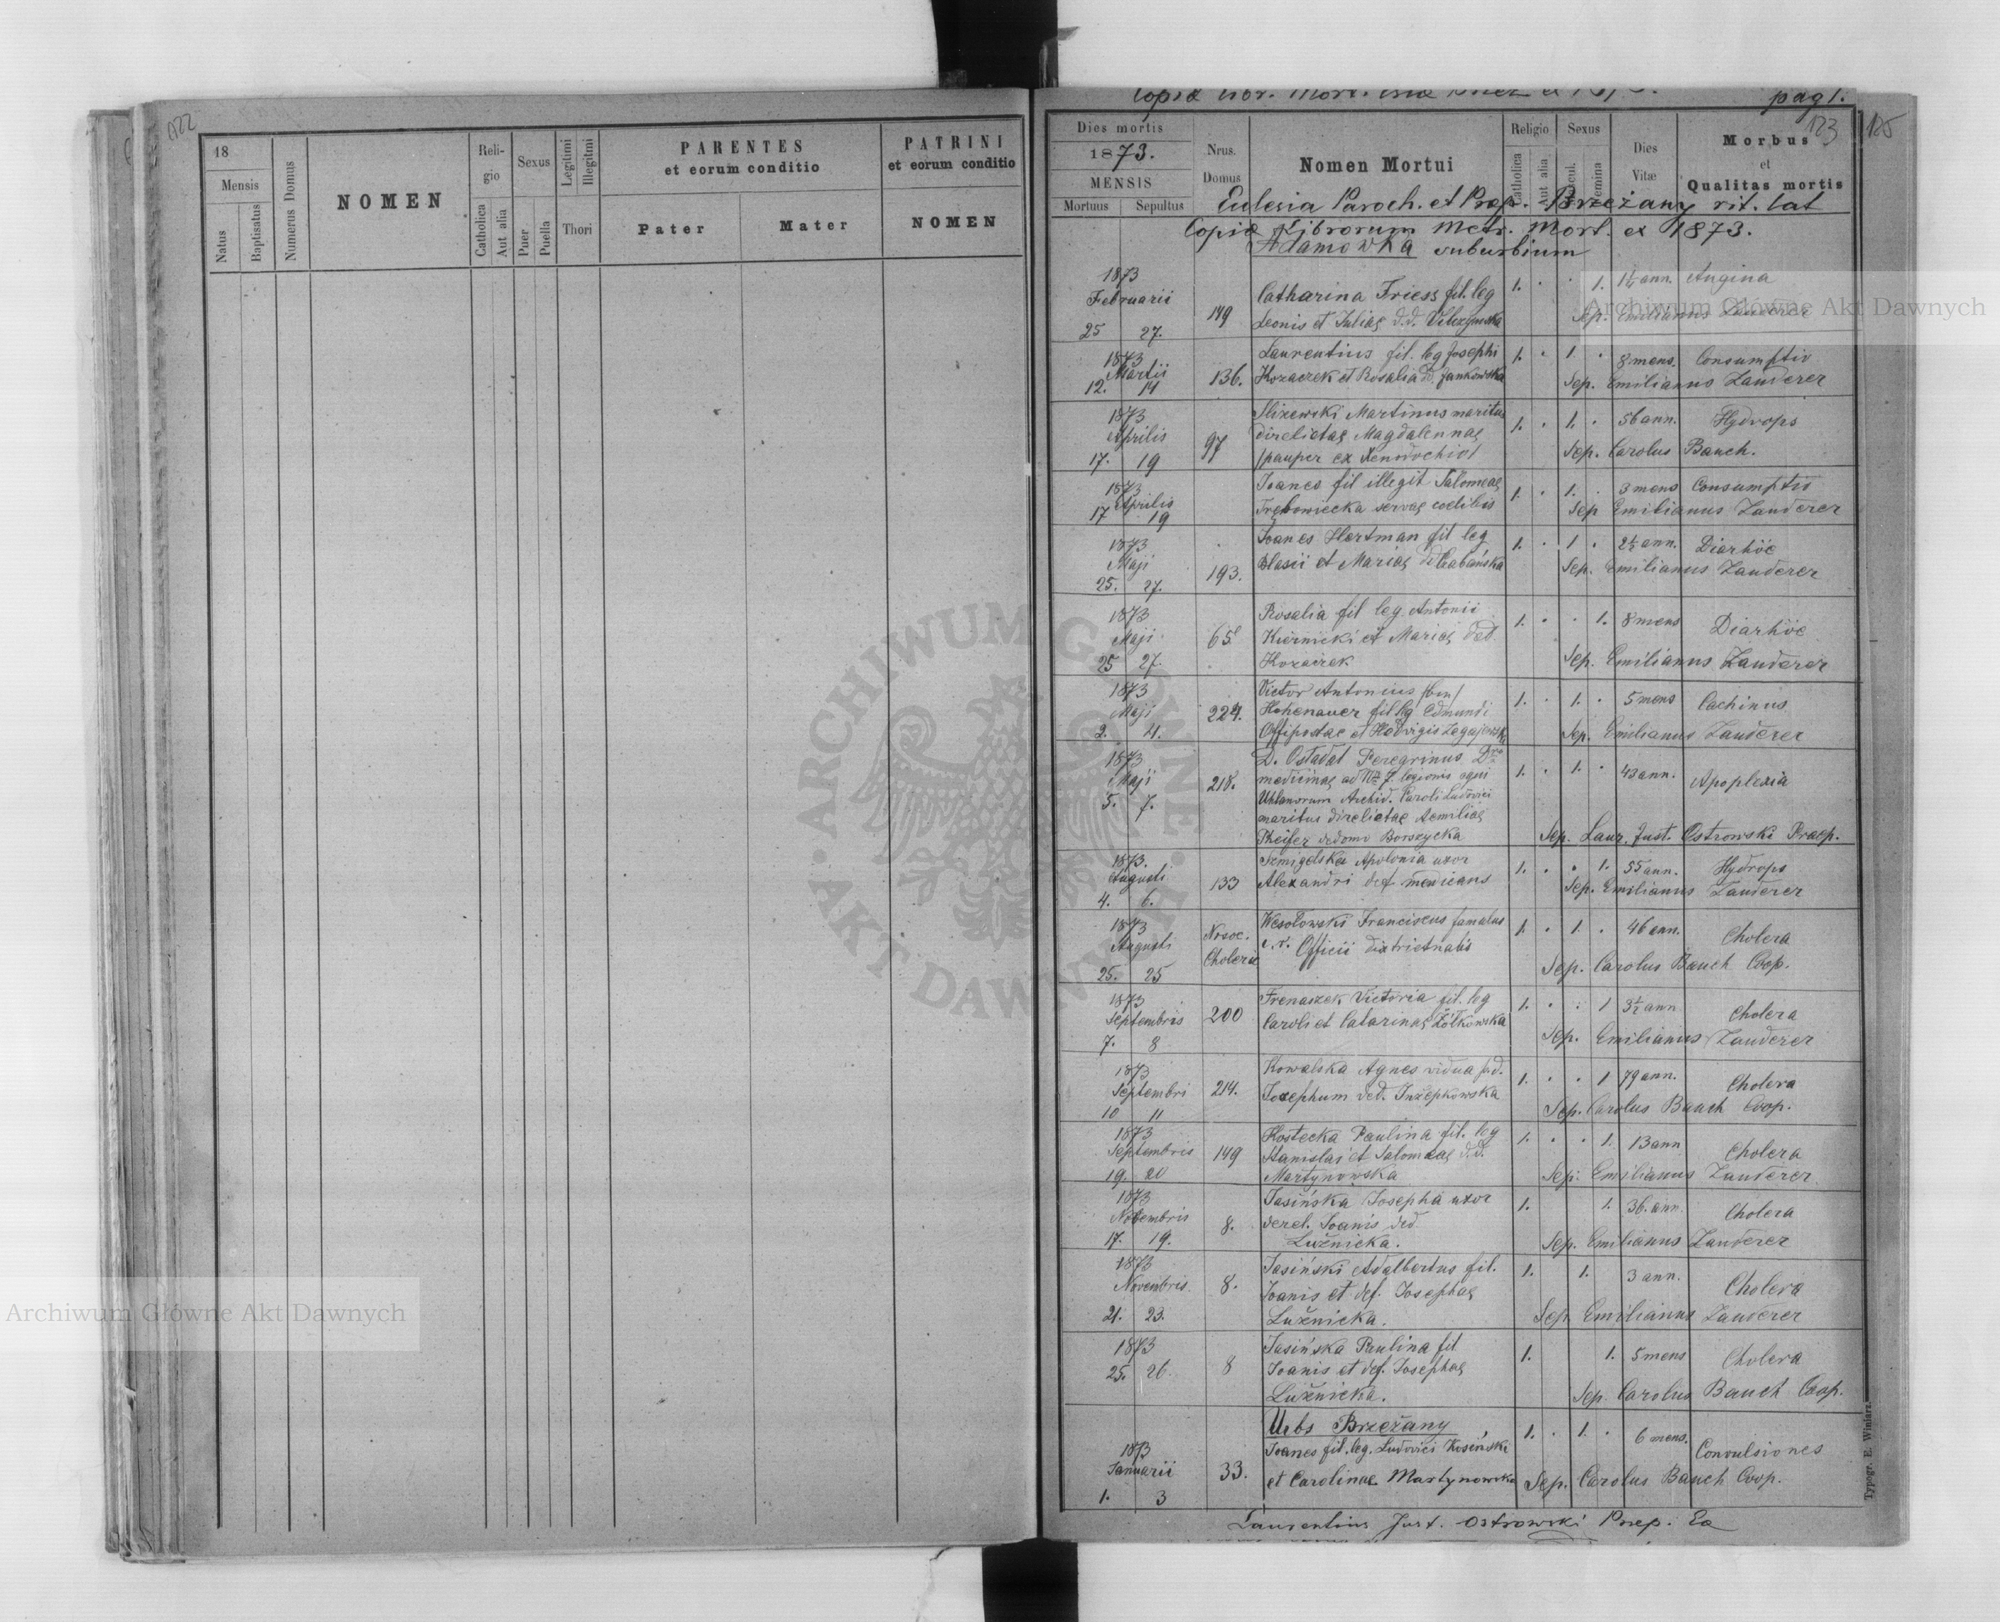 122
18
Mensis
Natus
Baptisatus
Numerus Domus
NOMEN
Reli-
gio
Catholica
Aut alia
Sexus
Puer
Puella
Legitimi
Illegitmi
Thori
PARENTES
et eorum conditio
Pater
Mater
PATRINI
et eorum conditio
NOMEN
pag 1.
123
125
Dies mortis
1873.
MENSIS
Mortuus
Sepultus
Nrus.
Domus
Nomen Mortui
Religio
Catholica
Aut alia
Sexus
Femina
Dies
Vitæ
Morbus
et
Qualitas mortis
Eclesia Paroch. et Prep. Brzeżany rit. lat
Copia Librorum Metr. Mort. ex 1873.
Adamowka suburbium
1873
Februarii
25 27.
149
Catharina Friess fil. leg
Leonis et Julias d.d.
1. 1. 1½ ann. Angina
Sep. Emilianus Zauderer
1873
Martii
12. 14
136.
Laurentius fil. leg Josephi
Kozaczek et Rosalia Jankowska
1. 1. 8 mens. Consumptio
Sep. Emilianus Zauderer
1873
Aprilis
17. 19
97
Slizewski Martinus maritus
direlictae Magdalennae
/pauper ex Xenodochio/
1. 1. 56 ann. Hydrops
Sep. Carolus Bauch.
1873
Aprilis
17 19
Joanes fil illegit Salomeae
servae coelibis
1. 1. 3 mens Consumptio
Sep Emilianus Zauderer
1873
Maji
25. 27.
193.
Joanes Hertman fil leg
Blasii et Mariae
1. 1 2½ ann. Diarhöe
Sep. Emilianus Zauderer
1873
Maji
25 27.
65
Rosalia fil leg Antonii
Kiernicki et Mariae ded.
1. 1. 8 mens Diarhöe
Sep. Emilianus Zauderer
1873
Maji
2. 4.
224.
Victor Antonius
Hohenauer fil leg Edmundi
Offipostae et Hedvigis
1. 1. 5 mens Cachinus
Sep. Emilianus Zauderer
1873
Maji
5. 7.
218.
D. Ostadal Peregrinus
medicinae ad 7. legionis equi
Uhlanorum Archid. Caroli Ludovici
maritus direlictae Aemiliae
Pheifer dedomo Borszycka
1. 1. 43 ann. Apoplexia
Sep. Laur. Just. Ostrowski Praep.
1873.
Augusti
4. 6.
133
Szmigelska Apolonia uxor
Alexandri def mendicans
1. 1. 55 ann. Hydrops
Sep. Emilianus Zauderer
1873
Augusti
25. 25
Nosoc.
Cholerae
Wesołowski Franciscus famulus
Officii districtualis
1. 1. 46 ann. Cholera
Sep. Carolus Bauch Coop.
1873
Septembris
7. 8
200
Frenaszek Victoria fil. leg
Caroli et Catarinae Żółkowska
1. 1 3½ ann Cholera
Sep. Emilianus Zauderer
1873
Septembri
10 11
214.
Kowalska Agnes vidua
Josephum ded. Juzepkowska
1. 1 79 ann. Cholera
Sep. Carolus Bauch Coop.
1873
Septembris
19. 20
149
Kostecka Paulina fil. leg
Stanislai et Salomeae d.d.
Martynowska
1. 1. 13 ann Cholera
Sep. Emilianus Zauderer
1873
Novembris
17. 19.
8.
Jasińska Josepha uxor
derel. Joanis ded.
Lużnicka.
1. 1. 36. ann. Cholera
Sep. Emilianus Zauderer
1873
Novembris.
21. 23.
8.
Jasiński Adalbertus fil.
Joanis et def. Josephae
Lużnicka.
1. 1. 3 ann. Cholera
Sep. Emilianus Zauderer
1873
25. 26
8
Jasińska Paulina fil
Joanis et def. Josephae
Lużnicka.
1. 1. 5 mens Cholera
Sep. Carolus Bauch Coop.
Urbs Brzeżany
1873
Januarii
1. 3
33.
Joanes fil. leg. Ludovici Kosiński
et Carolinae Martynowska
1. 1. 6 mens. Convulsiones
Sep. Carolus Bauch Coop.
Laurentius Just. Ostrowski Prep.
Typogr. E. Winiarz.
ARCHIWUM GŁÓWNE AKT DAWNYCH
Archiwum Główne Akt Dawnych
Archiwum Główne Akt Dawnych